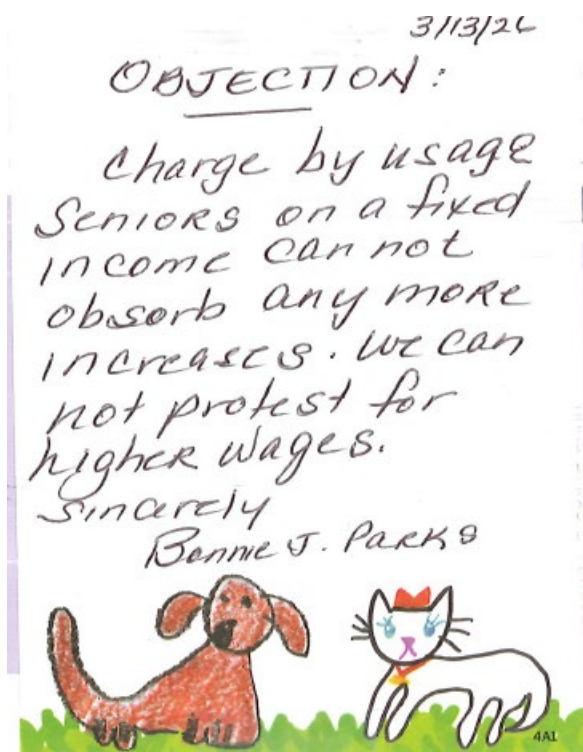 3/13/26
OBJECTION:
Charge by usage
Seniors on a fixed
income can not
absorb any more
increases. We can
not protest for
higher wages.
Sincerely
Bonnie J. Parks
4A1